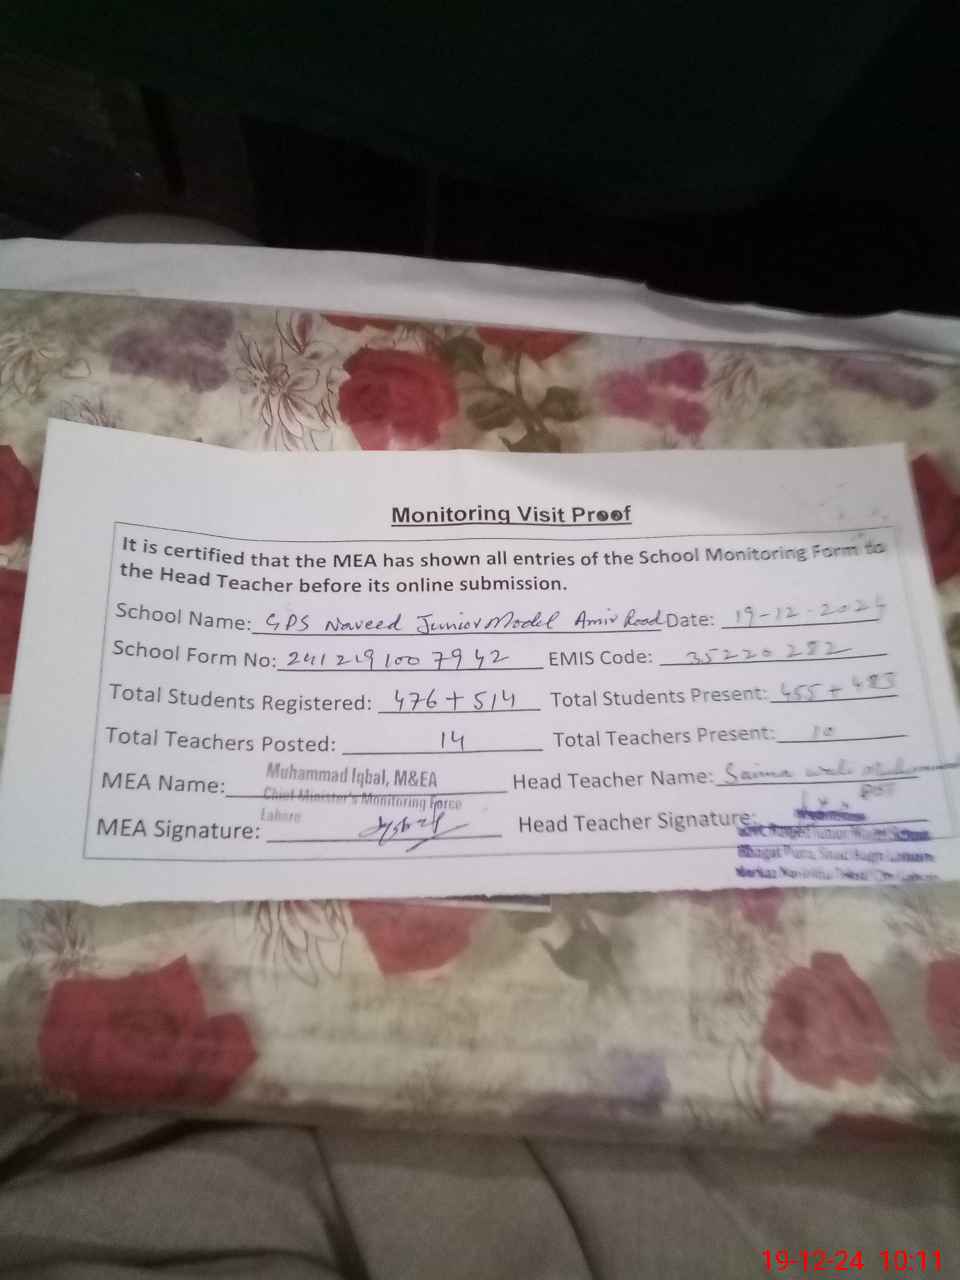 Monitoring Visit Proof
It is certified that the MEA has shown all entries of the School Monitoring Form to
the Head Teacher before its online submission.
School Name: GPS Naveed Junior Model Amir Road Date: 19-12-2024
School Form No: 241219100 7942 EMIS Code: 35220282
Total Students Registered: 476 + 514 Total Students Present: 455 + 485
Total Teachers Posted: 14 Total Teachers Present: 10
MEA Name: Muhammad Iqbal, M&EA Head Teacher Name: Saima
Chief Minister's Monitoring Force
Lahore
MEA Signature: Head Teacher Signature:
19-12-24 10:11